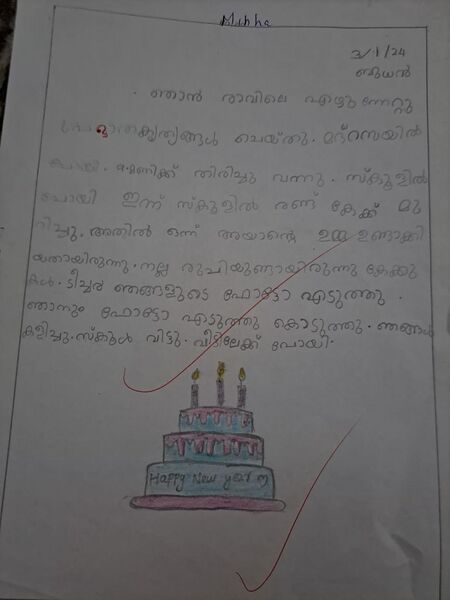 Minha
3/1/24
ബുധൻ
ഞാൻ രാവിലെ എഴുന്നേറ്റു
പ്രഭാതകൃത്യങ്ങൾ ചെയ്തു. മദ്റസയിൽ
പോയി. മണിക്ക് തിരിച്ചു വന്നു. സ്കൂളിൽ
പോയി ഇന്ന് സ്കൂളിൽ രണ്ട് കേക്ക് മു
റിച്ചു. അതിൽ ഒന്ന് അയാന്റെ ഉമ്മ ഉണ്ടാക്കി
യതായിരുന്നു. നല്ല രുചിയുണ്ടായിരുന്നു കേക്കു
കൾ. ടീച്ചർ ഞങ്ങളുടെ ഫോട്ടോ എടുത്തു.
ഞാനും ഫോട്ടോ എടുത്തു കൊടുത്തു. ഞങ്ങൾ
കളിച്ചു. സ്കൂൾ വിട്ടു. വീട്ടിലേക്ക് പോയി.
Happy New year